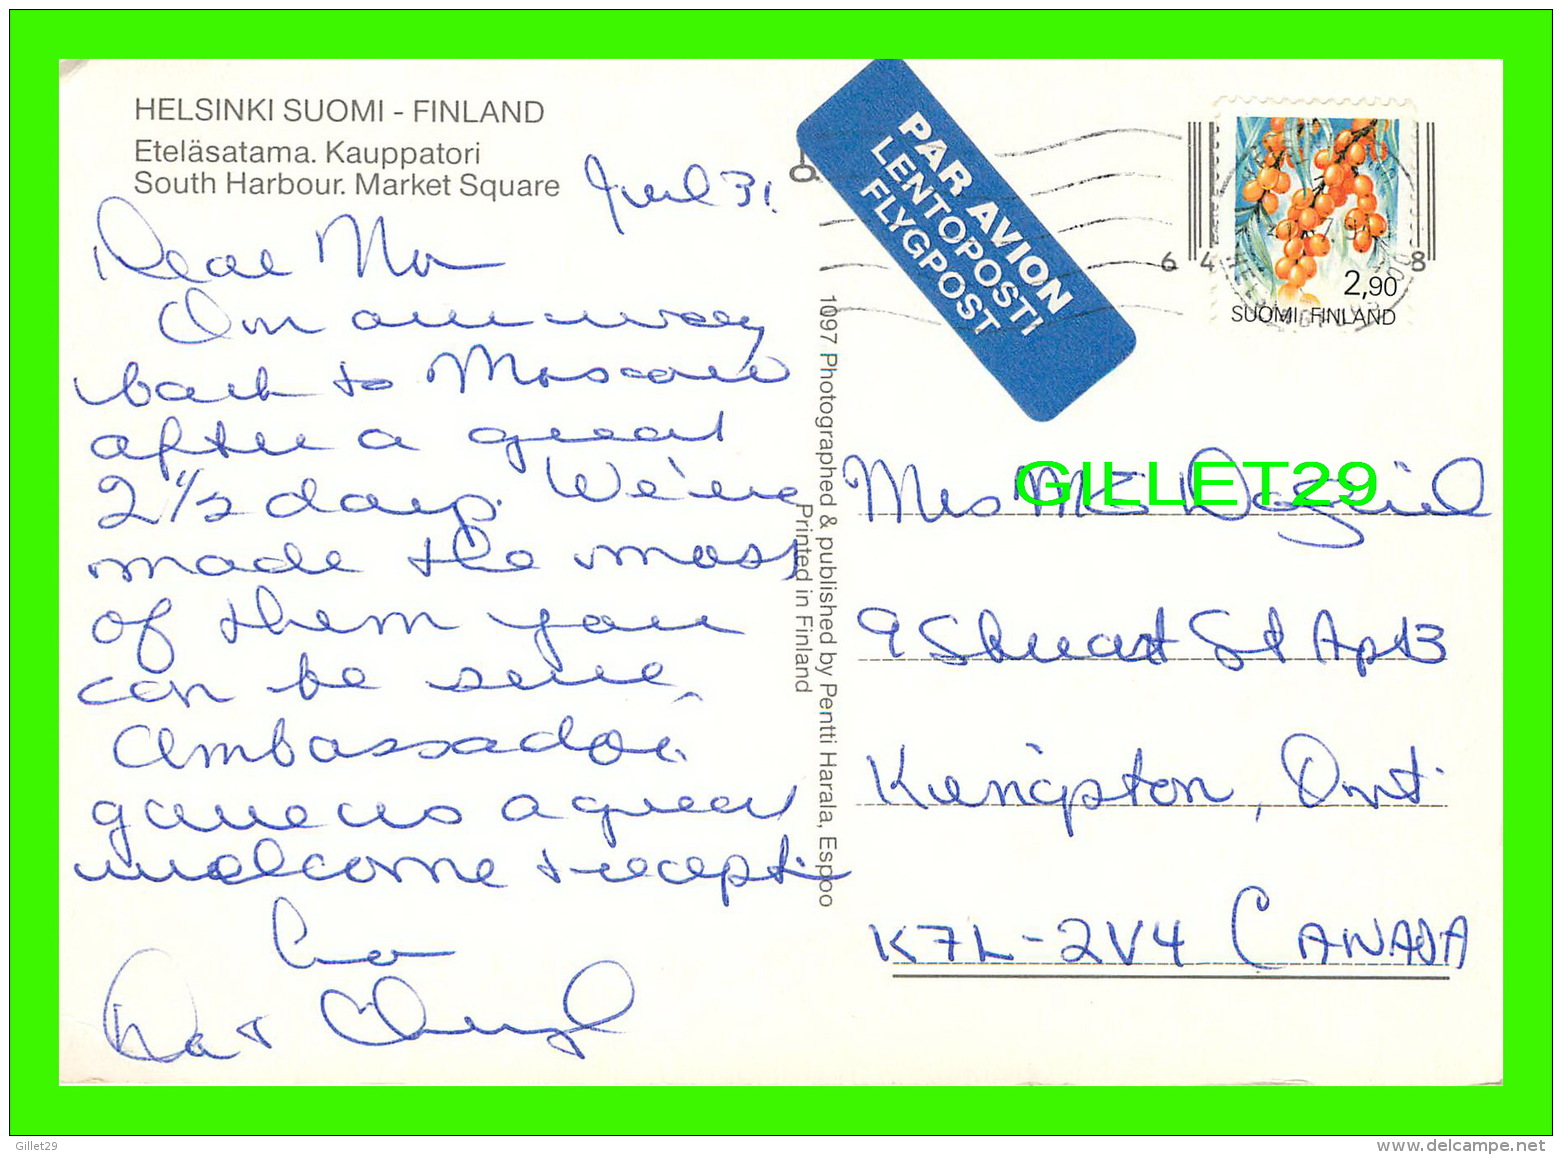 HELSINKI SUOMI - FINLAND
Eteläsatama. Kauppatori
South Harbour. Market Square
July 31
Dear Ma
On our way
back to Moscow
after a great
2 1/2 days. We've
made the most
of them you
can be sure
Ambassador
gave us a great
welcome + recepti
Love
Dad + Cheryl
1097 Photographed & published by Pentti Harala, Espoo
Printed in Finland
PAR AVION
LENTOPOSTI
FLYGPOST
6 4 8
2,90
SUOMI FINLAND
GILLET29
Mrs Dalziel
9 Stuart St Apt 3
Kingston, Ont.
K7L-2V4 CANADA
Gillet29
www.delcampe.net